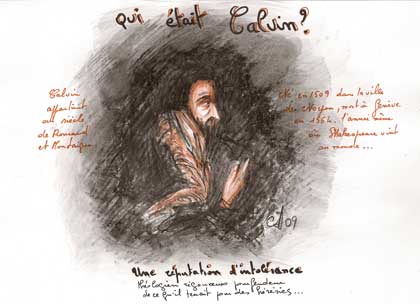 qui était Calvin?
Calvin
appartient
au siècle
de Ronsard
et Montaigne
Né en 1509 dans la ville
de Noyon, mort à Genève
en 1564. l'année même
où Shakespeare vint
au monde...
09
Une réputation d'intolérance
théologien rigoureux pourfendeur
de ce qu'il tenait pour des hérésies...